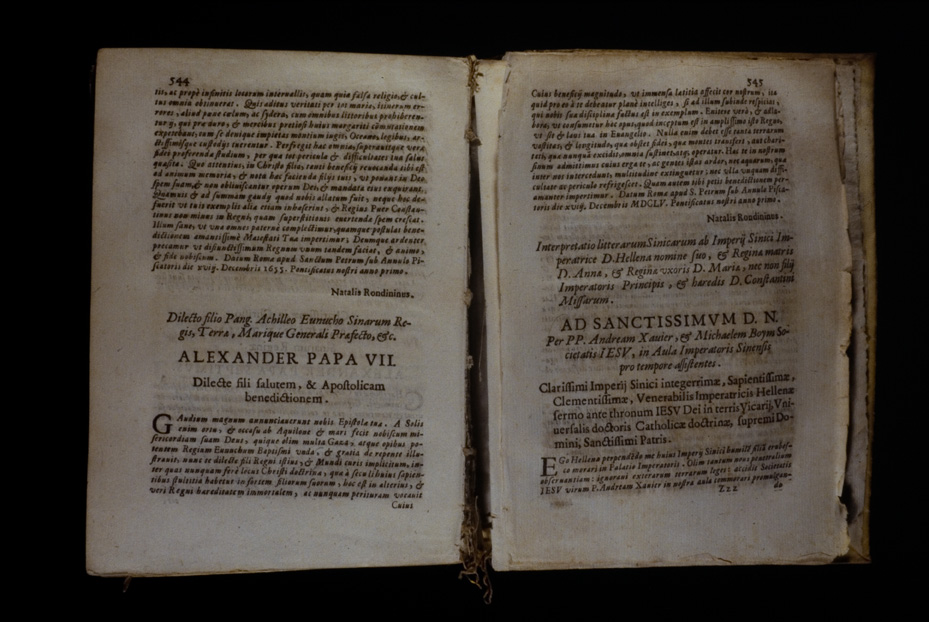 544
tis, ac propè infinitis locorum interuallis, quam quia falsa religio, & cul-
tus omnia obtinuerat. Quis aditus veritati per tot maria, itinerum er-
rores, aliud pane cœlum, ac sydera, cum omnibus littoribus prohiberen-
tur
expetebant, cum se denique impietas montium iugis, Oceano, legibus, ac
custodijs tuerentur. Perfregit hæc omnia, superauitque vera
fidei proferenda studium, per quæ tot pericula & difficultates ina salus
quæsita. Quo attentius, in Christo filia, tanti beneficij reuocanda tibi est
ad animum memoria, & nota hæc facienda filijs tuis, vt ponant in Deo
spem suam, & non obliuiscantur operum Dei, & mandata eius exquirant.
Quamuis & ad summam gaudij quod nobis allatum fuit, neque hoc de-
fuerit vt tuis exemplis alta etiam inhæserint, & Regius Puer Constan-
tinus non minus in Regni, quam superstitionis euertenda spem crescat.
Illum sane, vt vna omnes paternè complectimur, quamque postulas bene-
dictionem amantissimè Maiestati Tua impertimur; Deumque ardenter
precamur vt disiunctissimum Regnum vnum tandem faciat, & animo,
& fide nobiscum. Datum Romæ apud Sanctum Petrum sub Annulo Pi-
scatoris die xvig. Decembris 1655. Pontificatus nostri anno primo.
Natalis Rondininus.
Dilecto filio Pang. Achilleo Eunucho Sinarum Re-
gis, Terra, Marique Generali Præfecto, &c.
ALEXANDER PAPA VII.
Dilecte fili salutem, & Apostolicam
benedictionem.
Gaudium magnum annunciauerunt nobis Epistolæ tuæ. A Solis
enim ortu, & occasu ab Aquilone & mari fecit nobiscum mi-
sericordiam suam Deus, quique olim multa Gaza, atque opibus po-
tentem Reginæ Eunuchum Baptismi vnda, & gratia de repente illu-
strauit, nunc te dilecte fili Regni istius, & Mundi curis implicitum, in-
ter quas nunquam ferè locus Christi doctrina, quæ à seculi huius sapien-
tibus stultitia habetur in sortem filiorum suorum, hoc est in alterius, &
veri Regni hæreditatem immortalem, ac nunquam perituram vocauit
Cuius
545
Cuius beneficij magnitudo, vt immensa lætitia affecit cor nostrum, ita
quid pro eo à te debeatur planè intelliges, si ad illum subinde respicias,
qui nobis tandisciplina factus est in exemplum. Enitere verò, & adla-
bora, vt consumetur hoc opus, quod inceptum est in amplissimo isto Regno,
vt sit & laus tua in Euangelio. Nulla enim debet esse tanta terrarum
vastitas, & longitudo, quæ obstet fidei, quæ montes transfert, aut chari-
tati, quæ nunquam excidit, omnia sustinet, atq. operatur. Hæc te in nostrum
sinum admittimus cuius erga te, ac gentes istas ardor, nec aquarum, quæ
inter nos intercedunt, multitudine extinguetur; nec vlla vnquam diffi-
cultate ac periculo refrigescet. Quam autem tibi petis benedictionem per-
amanter impertimur. Datum Romæ apud S. Petrum sub Annulo Pisca-
toris die xviij. Decembris MDCLV. Pontificatus nostri anno primo.
Natalis Rondininus.
Interpretatio litterarum Sinicarum ab Imperij Sinici Im-
peratrice D. Hellena nomine suo, & Regina matris
D. Anna, & Reginæ vxoris D. Maria, nec non filij
Imperatoris Principis, & hæredis D. Constantini
Missarum.
AD SANCTISSIMVM D. N.
Per PP. Andream Xauier, & Michaelem Boym So-
cietatis IESV, in Aula Imperatoris Sinensis
pro tempore assistentes.
Clarissimi Imperij Sinici integerrimæ, Sapientissimæ,
Clementissimæ, Venerabilis Imperatricis Hellenæ
sermo ante thronum IESV Dei in terris Vicarij, Vni-
uersalis doctoris Catholicæ doctrinæ, supremi Do-
mini, Sanctissimi Patris.
EGo Hellena perpendēdo me huius Imperij Sinici humilē filiā erubes-
co morari in Palatio Imperatoris. Olim tantum noui penetralium
obseruantiam: ignoraui exterarum terrarum leges: accidit Societatis
IESV virum P. Andream Xauier in nostra aula commorari promulgan-
Zzz
do